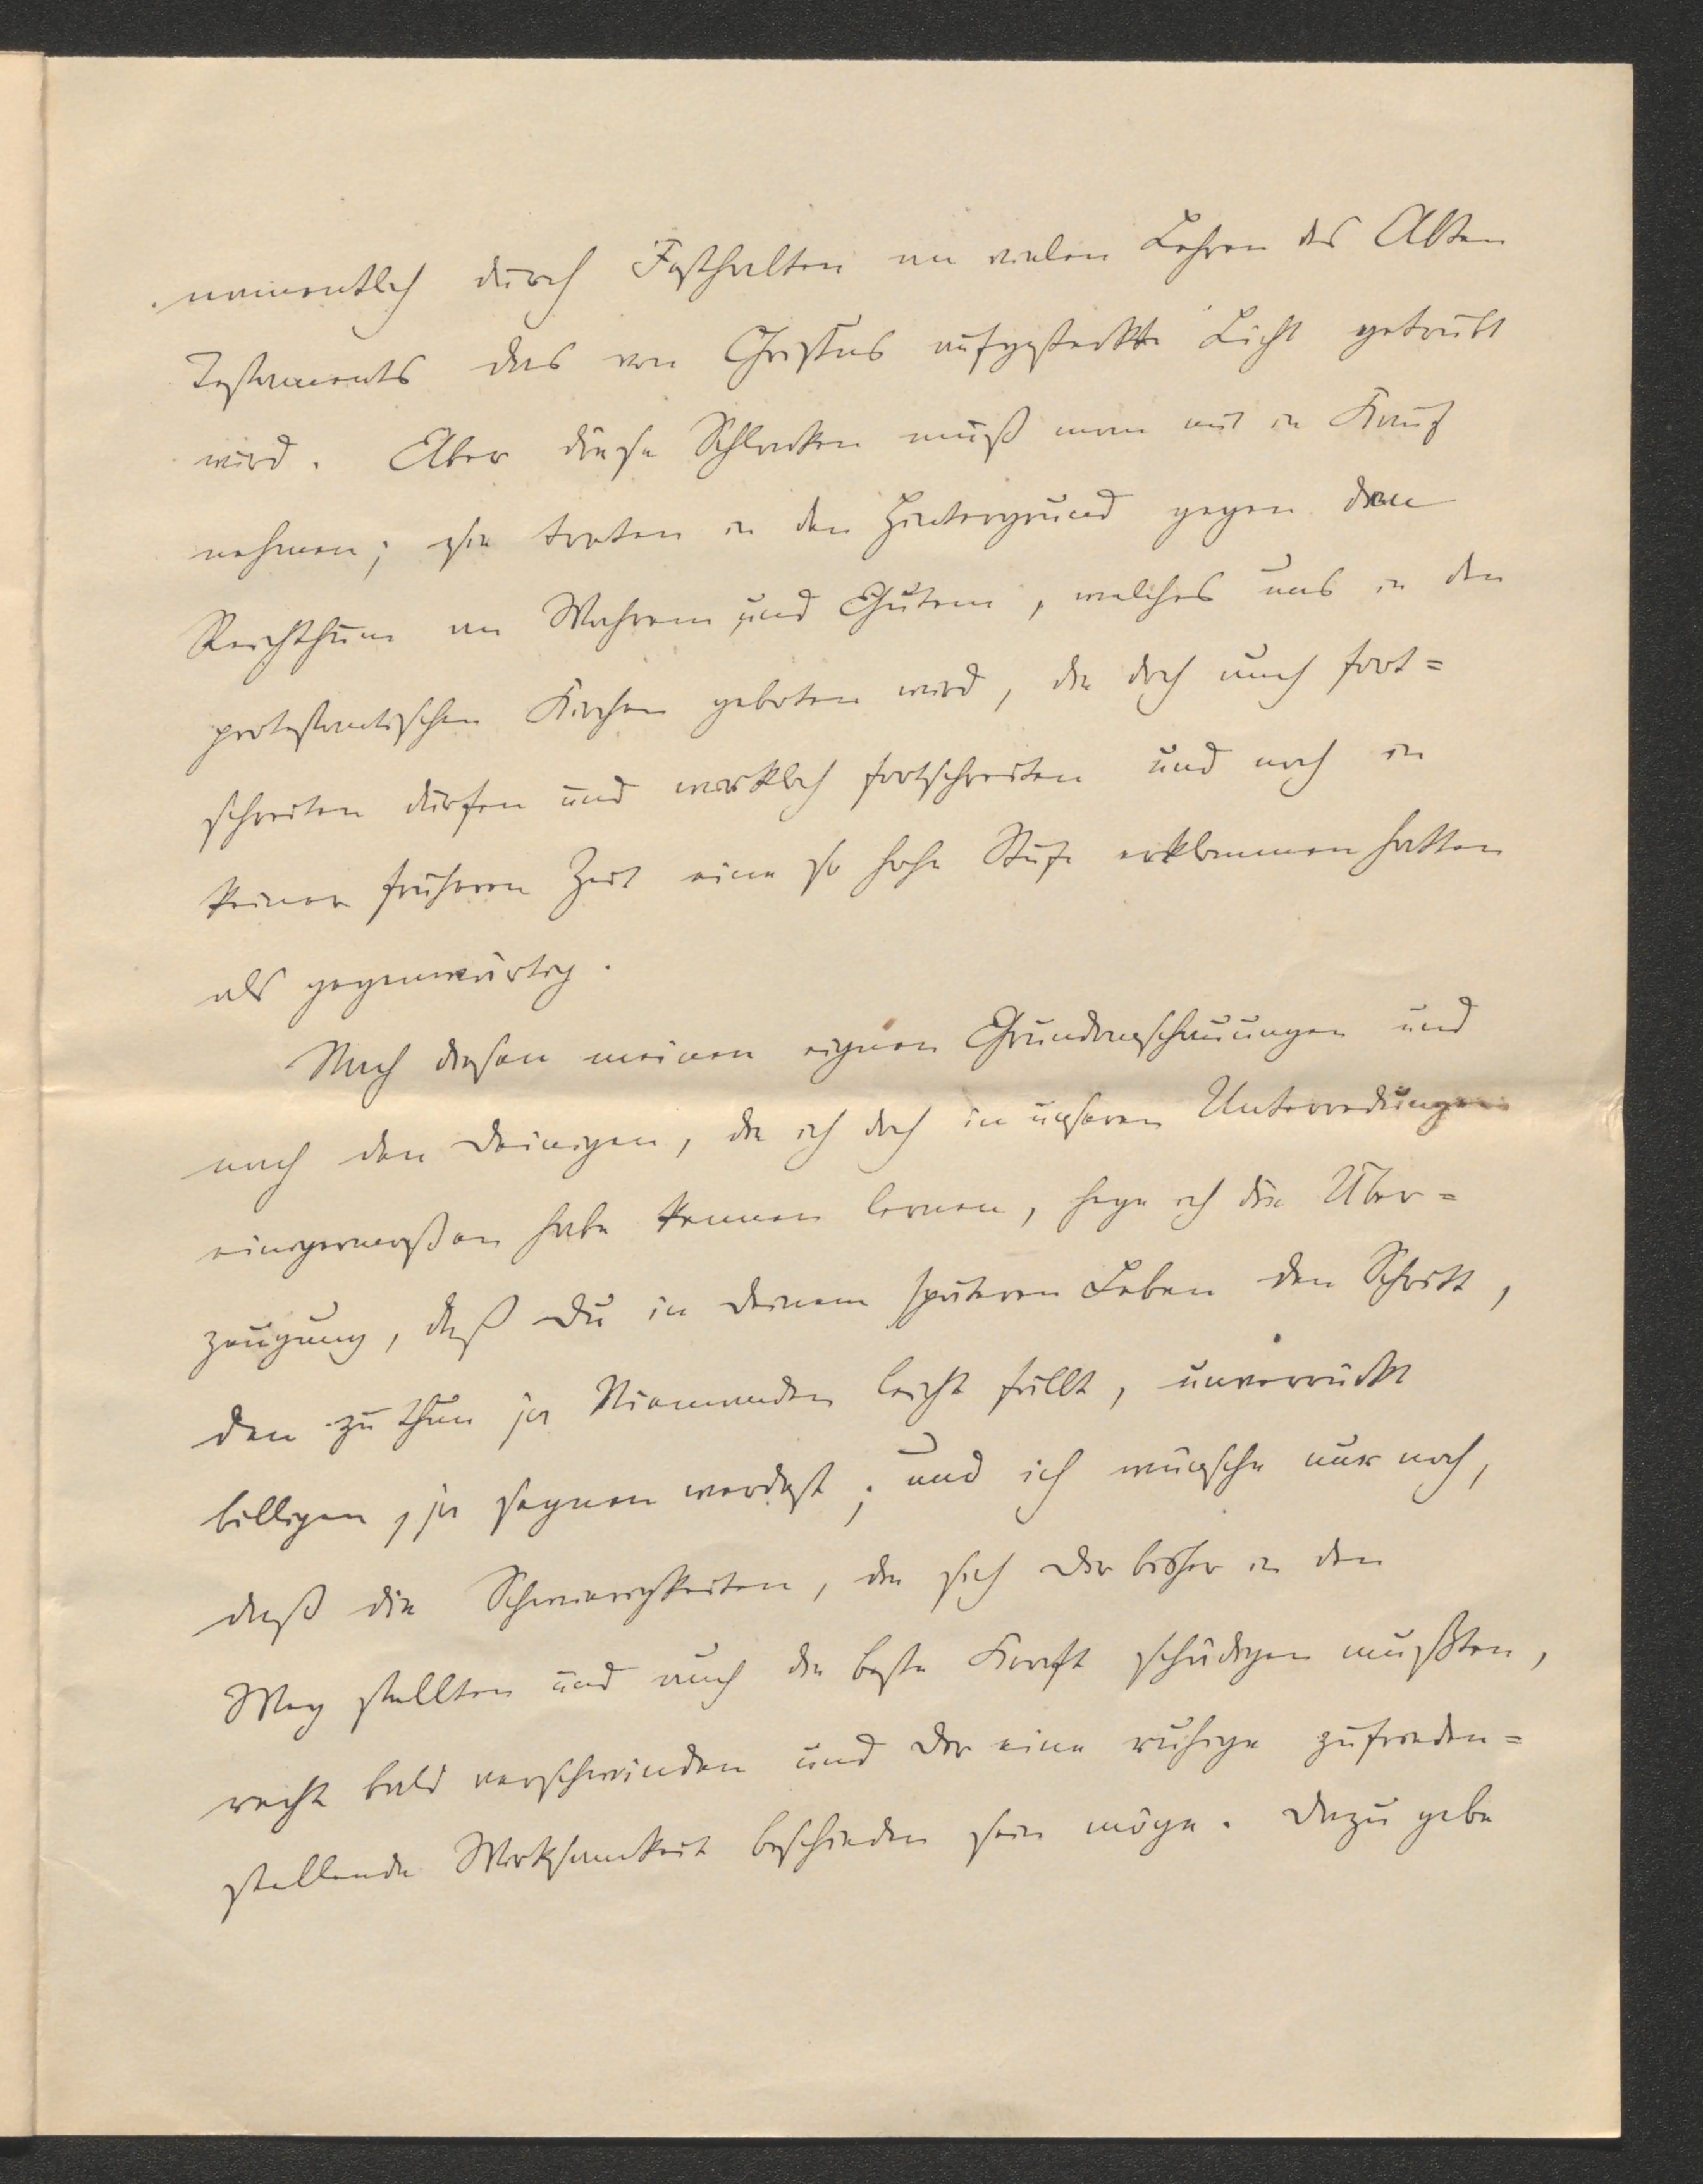 namentlich durch Festhalten an vielen Lehren des Alten
Testaments das von Christus aufgesteckte Licht getrübt
wird. Aber diese Schlacken muß man mit in Kauf
nehmen; sie treten in den Hintergrund gegen den
Reichthum an Wahrem und Gutem, welches uns in den
protestantischen Kirchen geboten wird, die doch auch fort=
schreiten dürfen und wirklich fortschreiten und noch in
keiner früheren Zeit eine so hohe Stufe erklommen hatten
als gegenwärtig.
Nach diesen meinen eignen Grundanschauungen und
nach den Deinigen, die ich doch in unseren Unterredungen
einigermaßen habe kennen lernen, hege ich die Über=
zeugung, daß Du in Deinem späteren Leben den Schritt,
den zu thun ja Niemanden leicht fällt, unverrückt
billigen, ja segnen werdest; und ich wünsche nur noch,
daß die Schwierigkeiten, die sich Dir bisher in den
Weg stellten und auch die beste Kraft schädigen mußten,
recht bald verschwinden und Dir eine ruhige zufrieden=
stellende Wirksamkeit beschieden sein möge. Dazu gebe